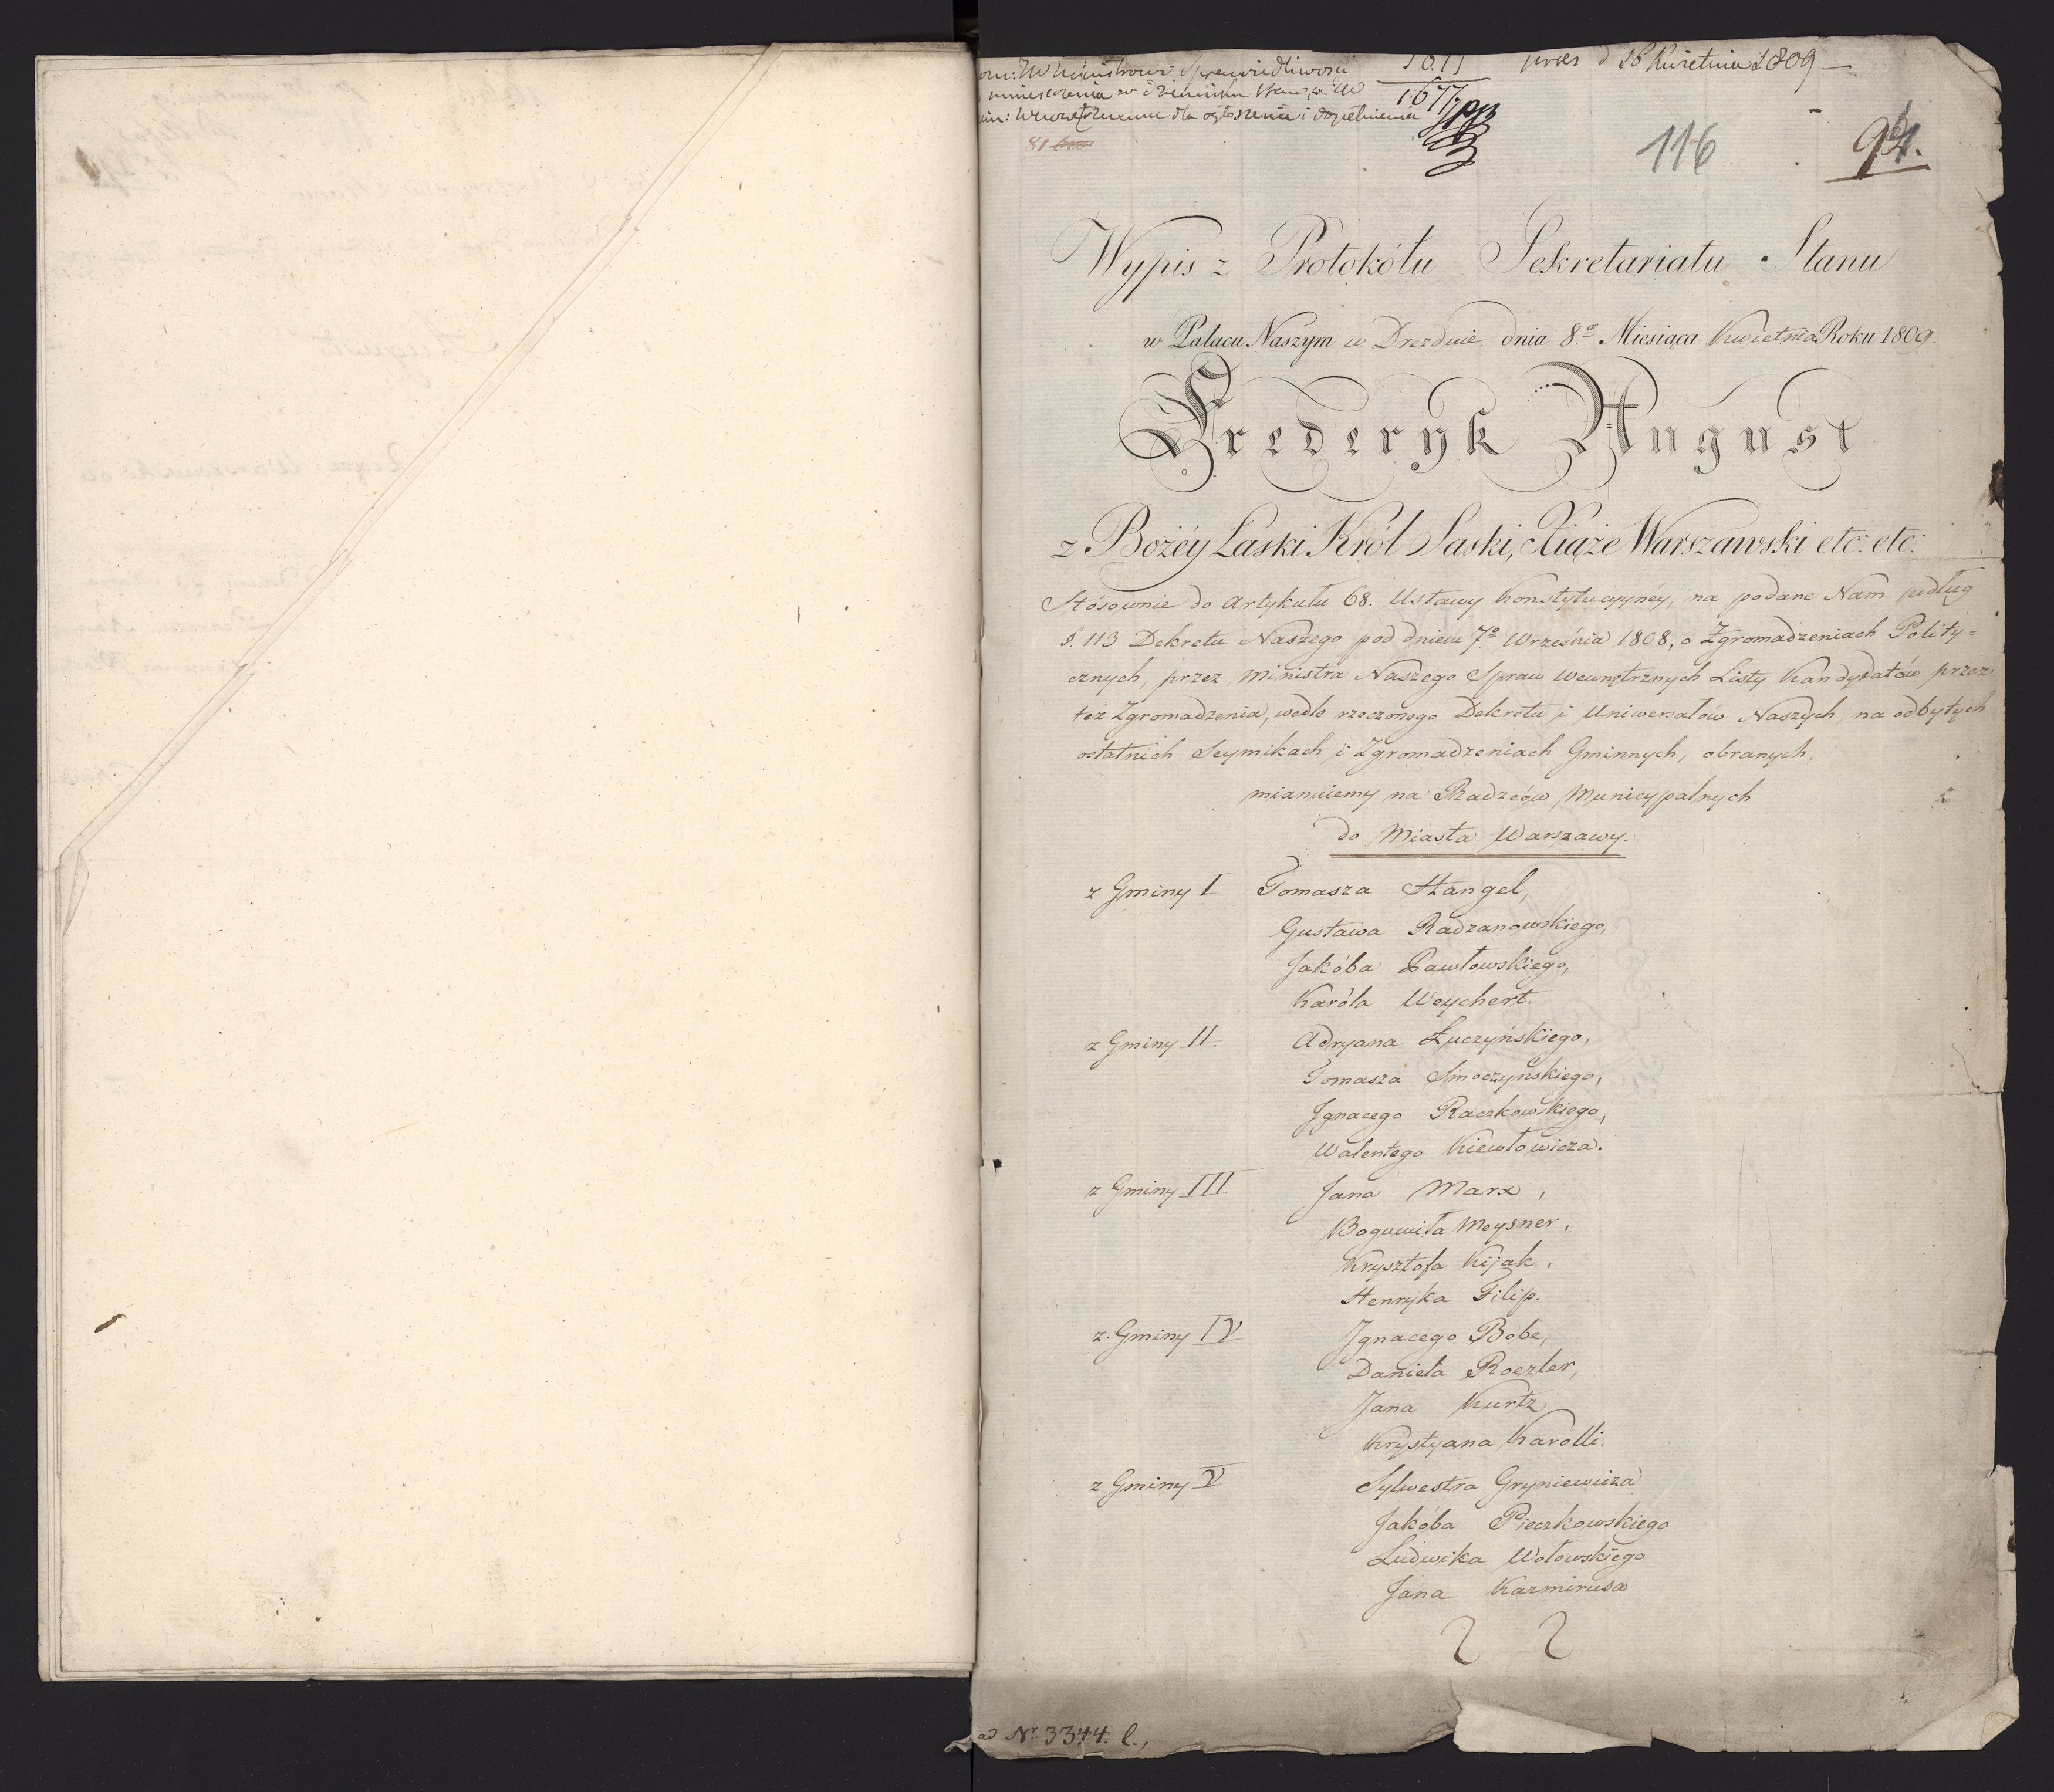 Ministrowi Sprawiedliwości
umieszczenia w dzienniku Praw, i M
Wewnętrznemu dla ogłoszenia i dopełnienia
1677.
præs d 26 Kwietnia 1809 —
81
116
94.
Wypis z Protokółu Sekretariatu Stanu
w Pałacu Naszym w Dreznie dnia 8.º Miesiąca Kwietnia Roku 1809.
Frederyk August
z Bożéy Łaski Król Saski, Xiąże Warszawski etc: etc:
Stósownie do Artykułu 68. Ustawy Konstytucyynéy, na podane Nam podług
§. 113 Dekretu Naszego pod dniem 7º Września 1808, o Zgromadzeniach Polity=
cznych, przez Ministra Naszego Spraw Wewnętrznych Listy Kandydatów przez
też Zgromadzenia, wedle rzeczonego Dekretu i Uniwersałów Naszych, na odbytych
ostatnich Seymikach i Zgromadzeniach Gminnych, obranych,
mianuiemy na Radzców Municypalnych
do Miasta Warszawy.
z Gminy I Tomasza Stangel,
Gustawa Radzanowskiego,
Jakóba Pawłowskiego,
Karóla Weychert.
z Gminy II. Adryana Łuczyńskiego,
Tomasza Smoczyńskiego,
Jgnacego Raczkowskiego,
Walentego Kiewłowicza.
z Gminy III Jana Marx,
Bogumiła Meysner,
Krysztofa Kijak,
Henryka Filip.
z Gminy IV Jgnacego Bobe,
Daniela Roezler,
Jana Kurtz
Krystyana Karolli.
z Gminy V Sylwestra Gryniewicza
Jakóba Pieczkowskiego
Ludwika Wołowskiego
Jana Kazmirusa
ad Nr. 3344. l.,